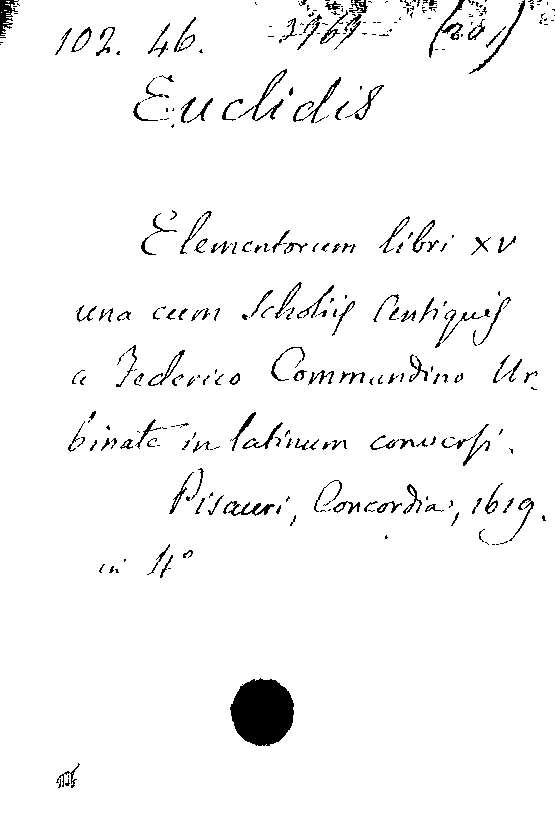 102. 46. 1969 (20,)
Euclidis
Elementorum libri XV
una cum Scholiis Antiquis
a Federico Commandino Ur-
binate in latinum conversi.
Pisauri, Concordia, 1619.
in 4°